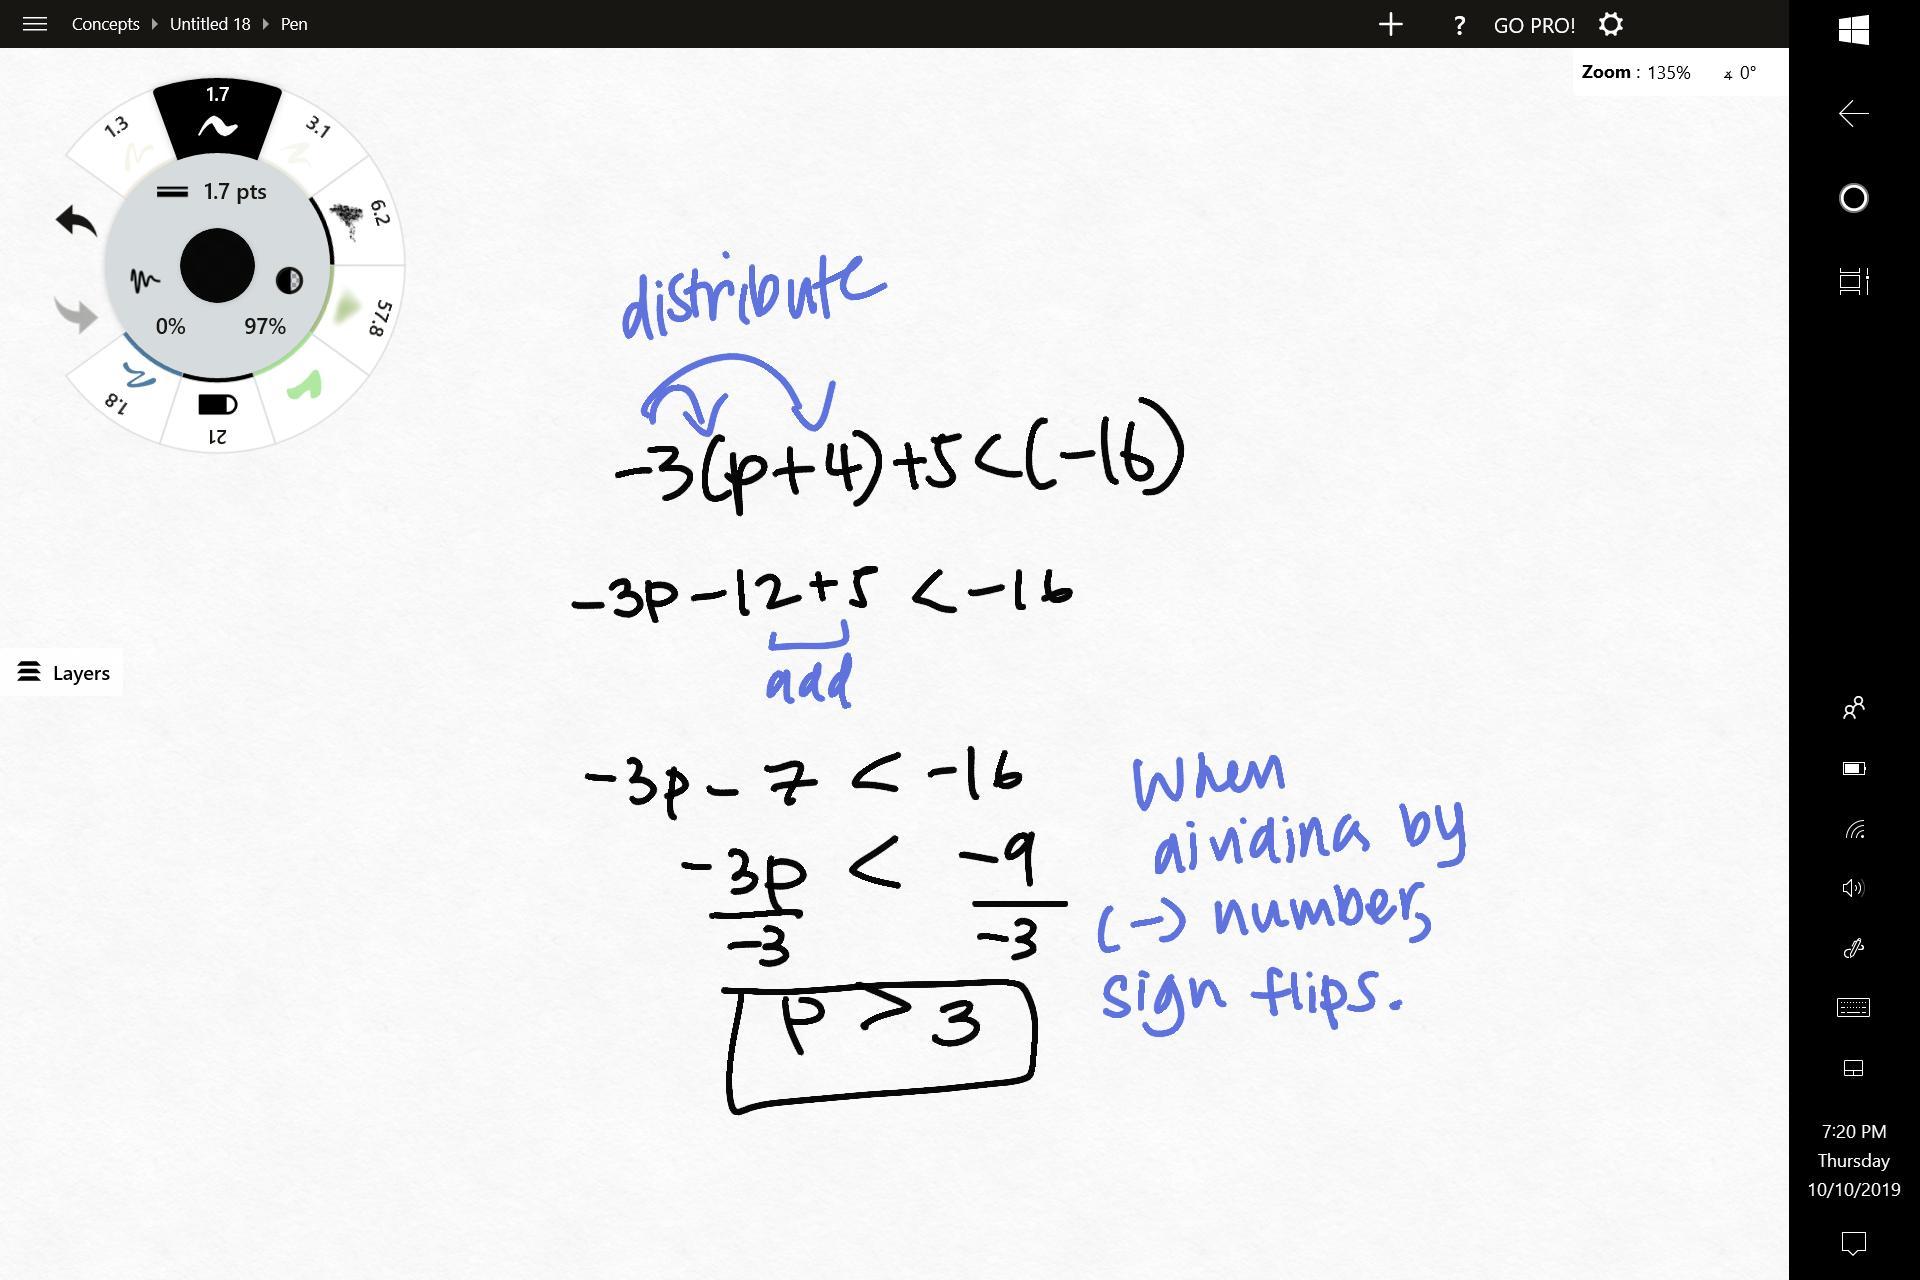 Concepts Untitled 18 Pen
? GO PRO!
Zoom : 135% 0°
1.7
1.3
3.1
1.7 pts
6.2
0% 97%
57.8
1.8
21
Layers
distribute
-3(p+4)+5<(-16)
-3p-12+5 < -16
add
-3p - 7 < -16
-3p < -9
-3 -3
p > 3
When
dividing by
(-) number,
sign flips.
7:20 PM
Thursday
10/10/2019